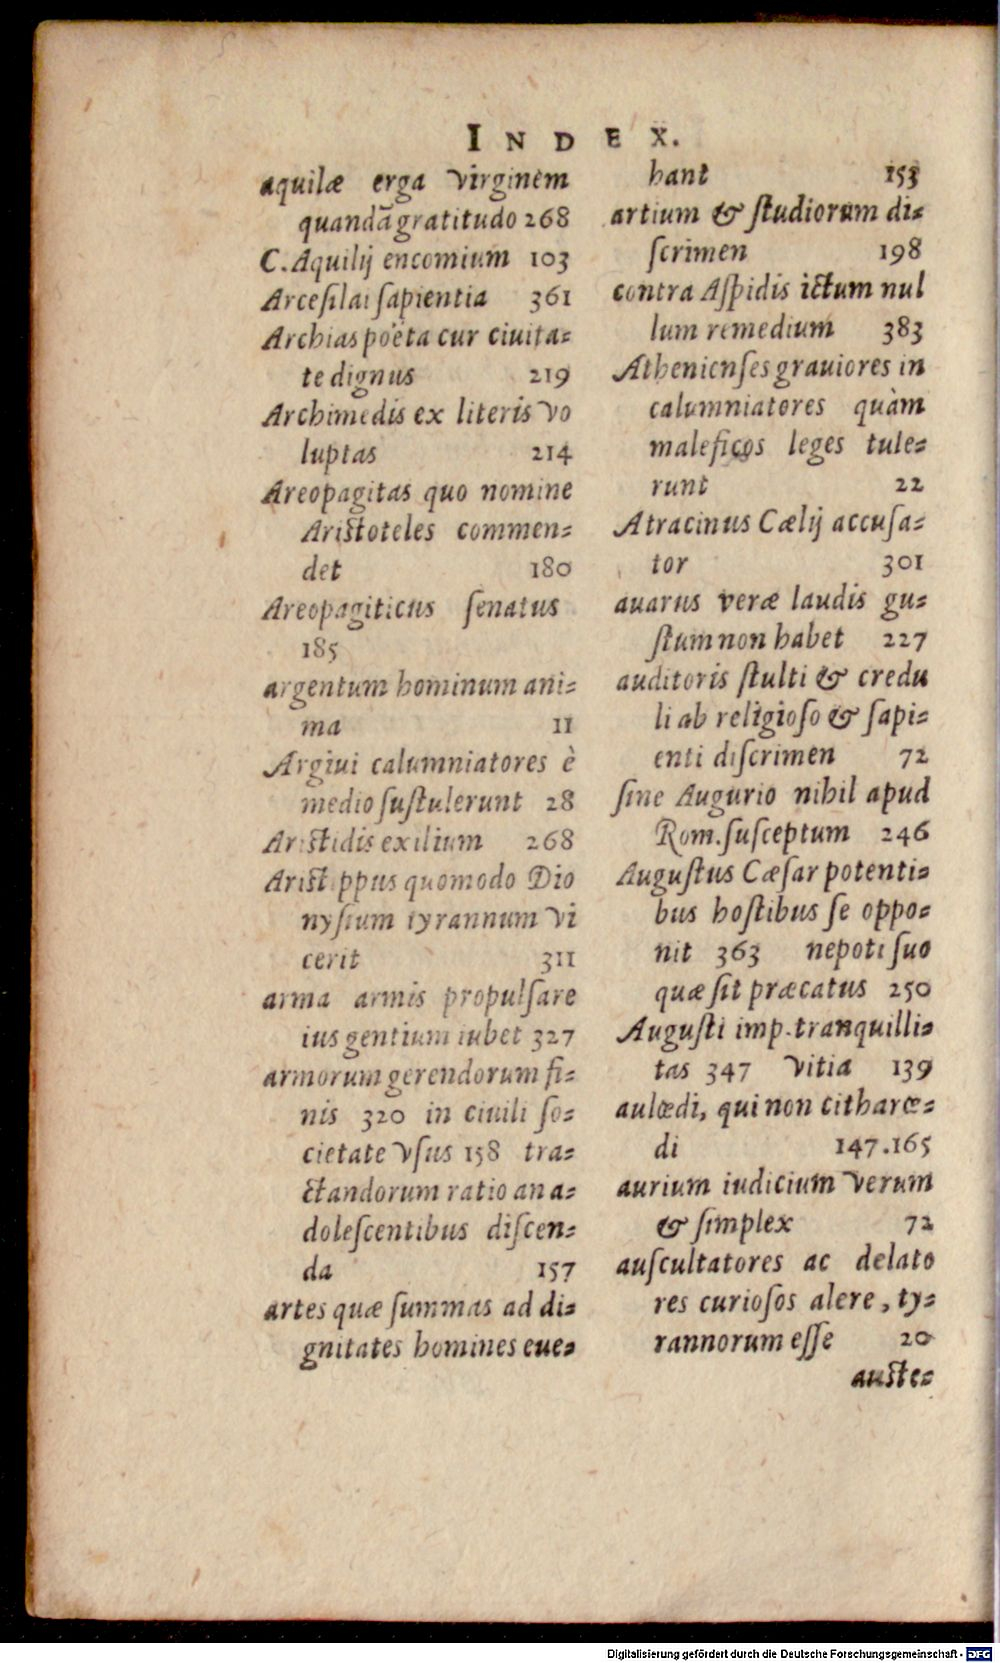 INDEX.
aquilæ erga virginem
quandã gratitudo 268
C. Aquilij encomium 103
Arcesilai sapientia 361
Archias poëta cur ciuita-
te dignus 219
Archimedis ex literis vo
luptas 214
Areopagitas quo nomine
Aristoteles commen-
det 180
Areopagiticus senatus
185
argentum hominum ani-
ma 11
Argiui calumniatores è
medio sustulerunt 28
Aristidis exilium 268
Aristippus quomodo Dio
nysium tyrannum vi
cerit 311
arma armis propulsare
ius gentium iubet 327
armorum gerendorum fi-
nis 320 in ciuili so-
cietate vsus 158 tra-
ctandorum ratio an a-
dolescentibus discen-
da 157
artes quæ summas ad di-
gnitates homines eue-
hant 153
artium & studiorum di-
scrimen 198
contra Aspidis ictum nul
lum remedium 383
Athenienses grauiores in
calumniatores quàm
maleficos leges tule-
runt 22
Atracinus Cælij accusa-
tor 301
auarus veræ laudis gu-
stum non habet 227
auditoris stulti & credu
li ab religioso & sapi-
enti discrimen 72
sine Augurio nihil apud
Rom. susceptum 246
Augustus Cæsar potenti-
bus hostibus se oppo-
nit 363 nepoti suo
quæ sit præcatus 250
Augusti imp. tranquilli-
tas 347 vitia 139
aulœdi, qui non citharœ-
di 147.165
aurium iudicium verum
& simplex 72
auscultatores ac delato
res curiosos alere, ty-
rannorum esse 20
auste-
Digitalisierung gefördert durch die Deutsche Forschungsgemeinschaft - DFG